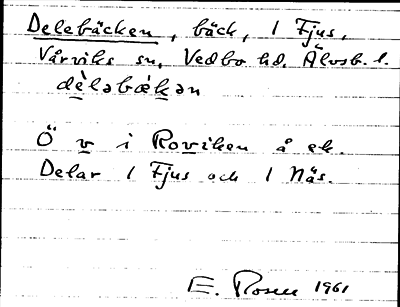 Delebäcken, bäck, 1 Fjus,
Vårviks sn, Vedbo hd. Älvsb. l.
dè̱lebæ̀ḵən
Ö v i Roviken å ek.
Delar 1 Fjus och 1 Näs.
E. Rosen 1961